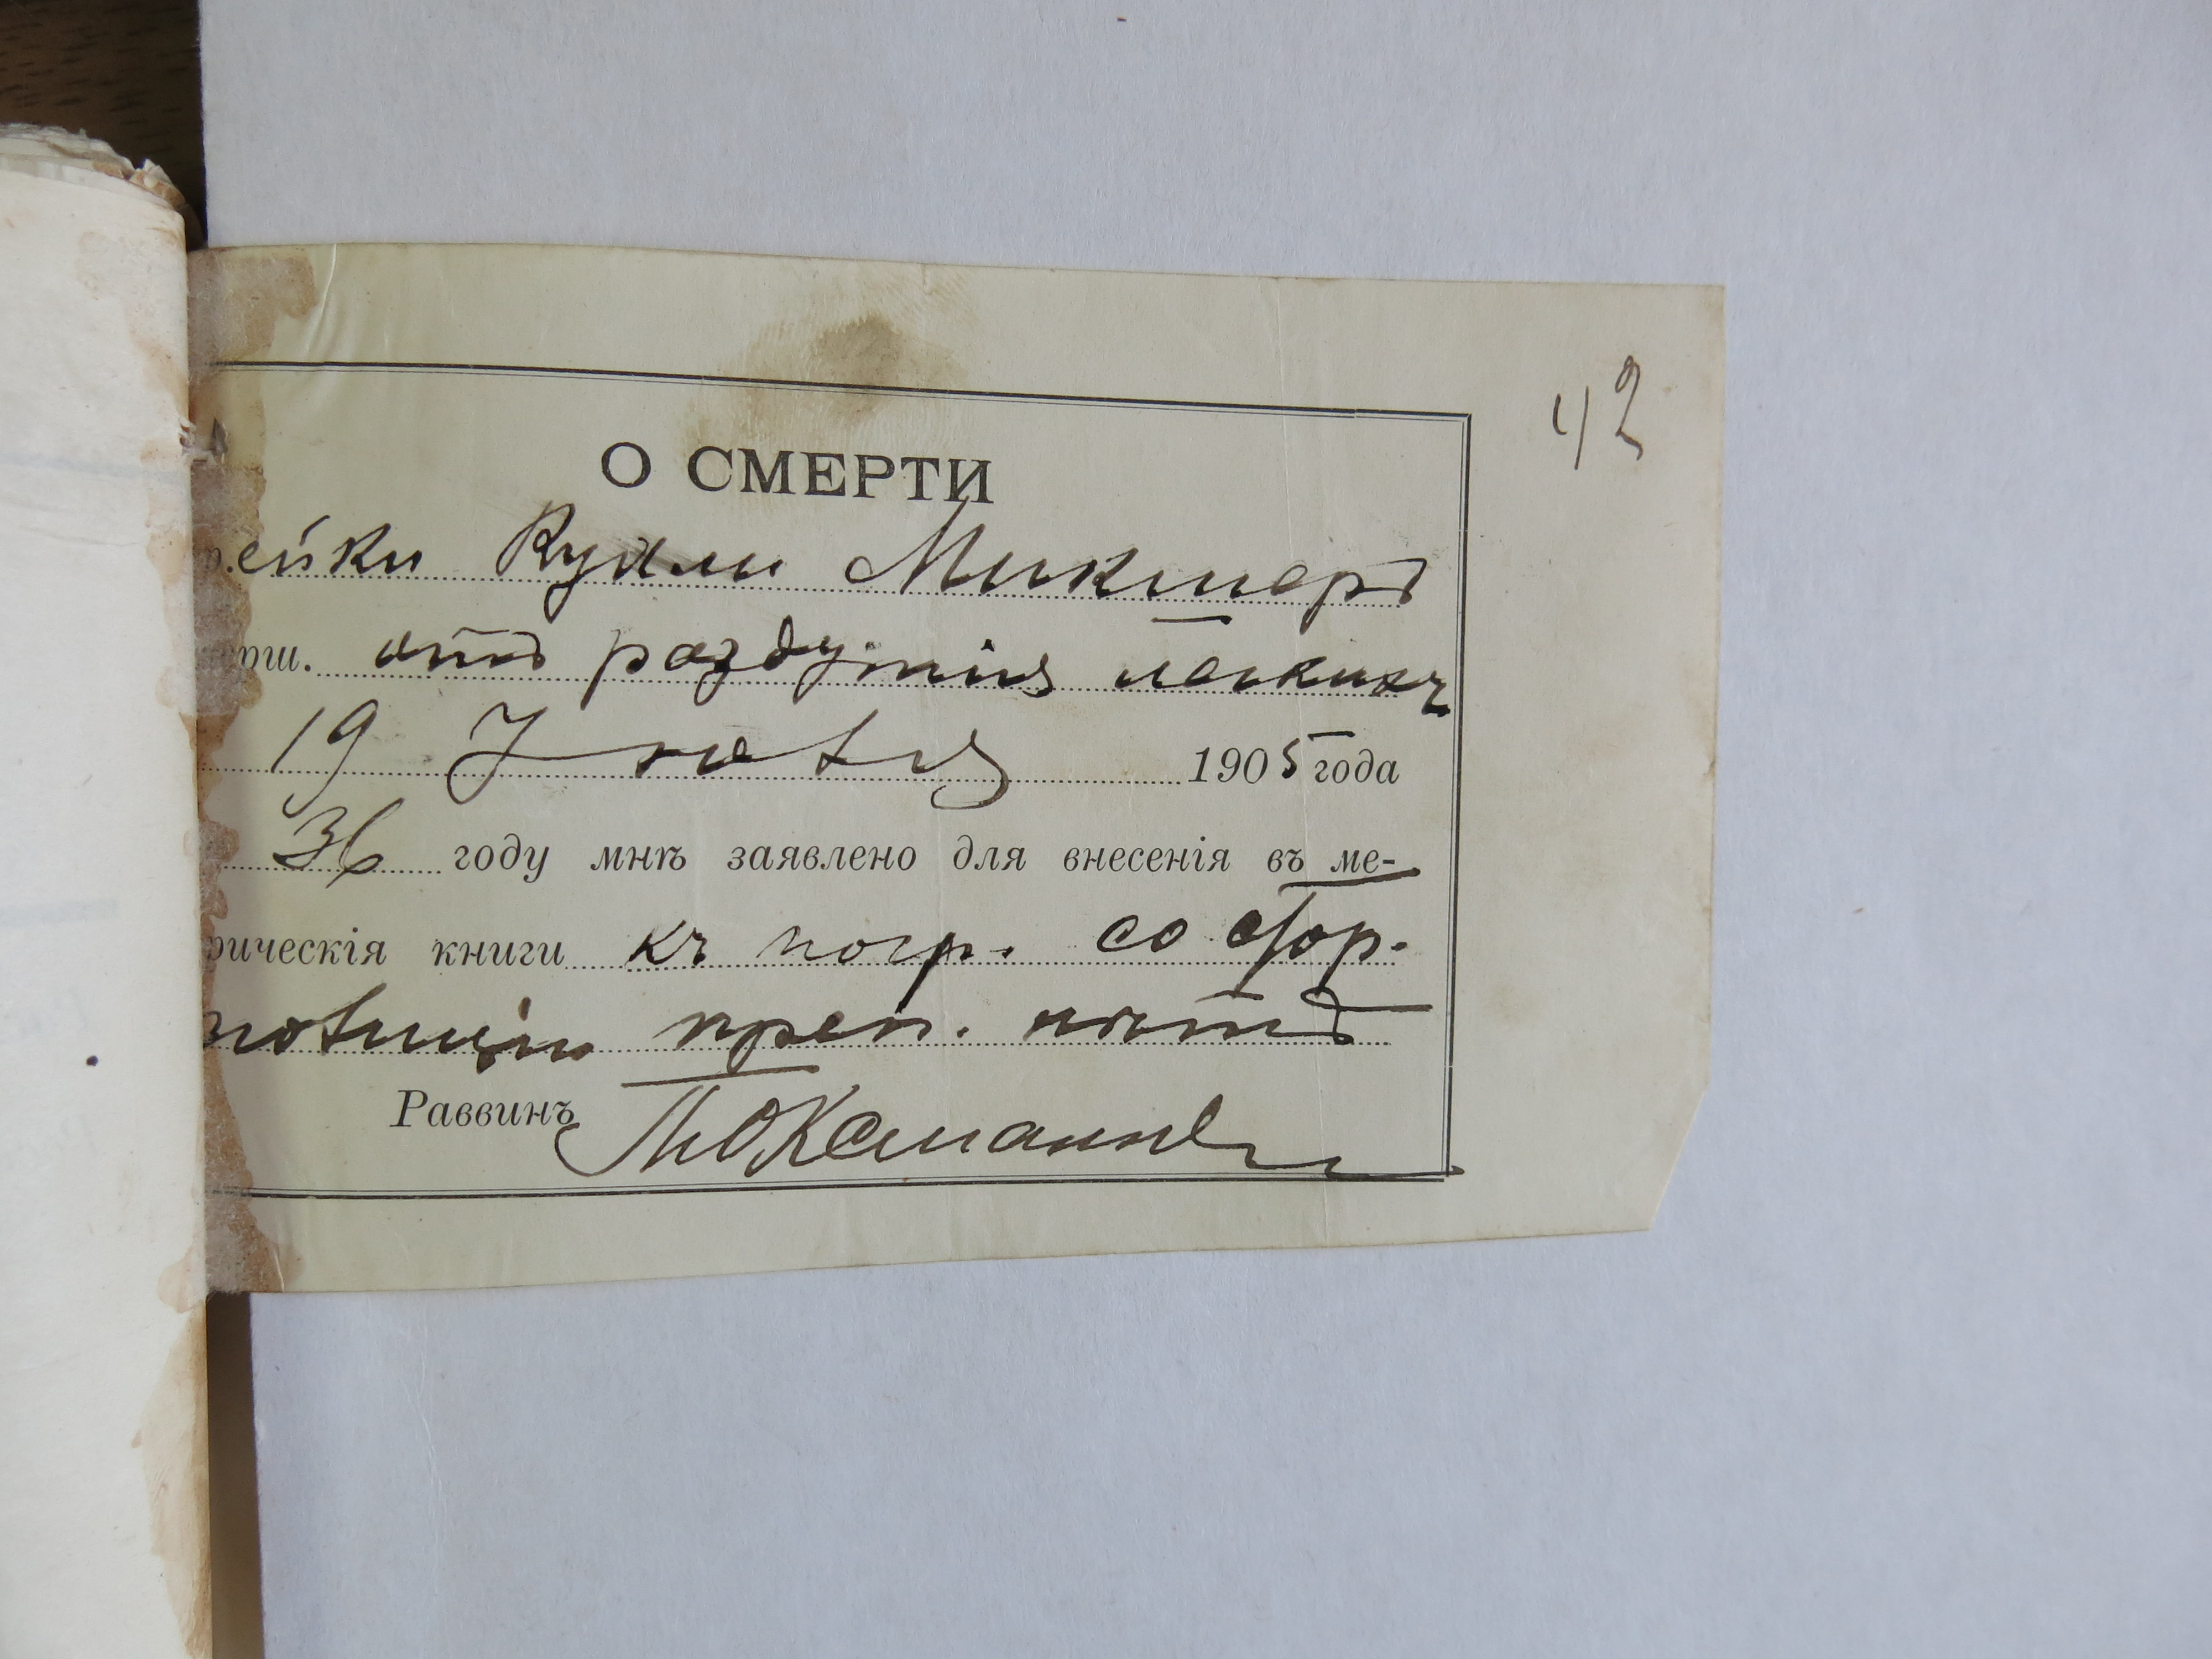 42
О СМЕРТИ
ейки Рухли Микшеръ
рш. отъ раздутія легкихъ
19 Іюля 1905 года
36 году мнѣ заявлено для внесенія въ ме-
рическія книги къ погр. со стор.
полиціи преп. нѣтъ
Раввинъ